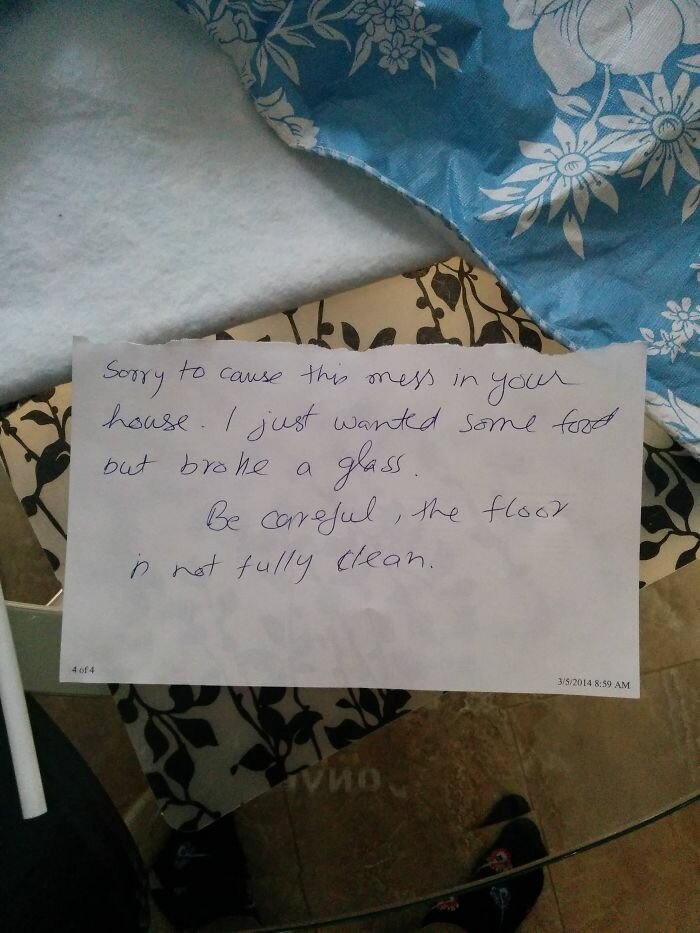 Sorry to cause this mess in your
house. I just wanted some food
but broke a glass.
Be careful, the floor
is not fully clean.
4 of 4
3/5/2014 8:59 AM